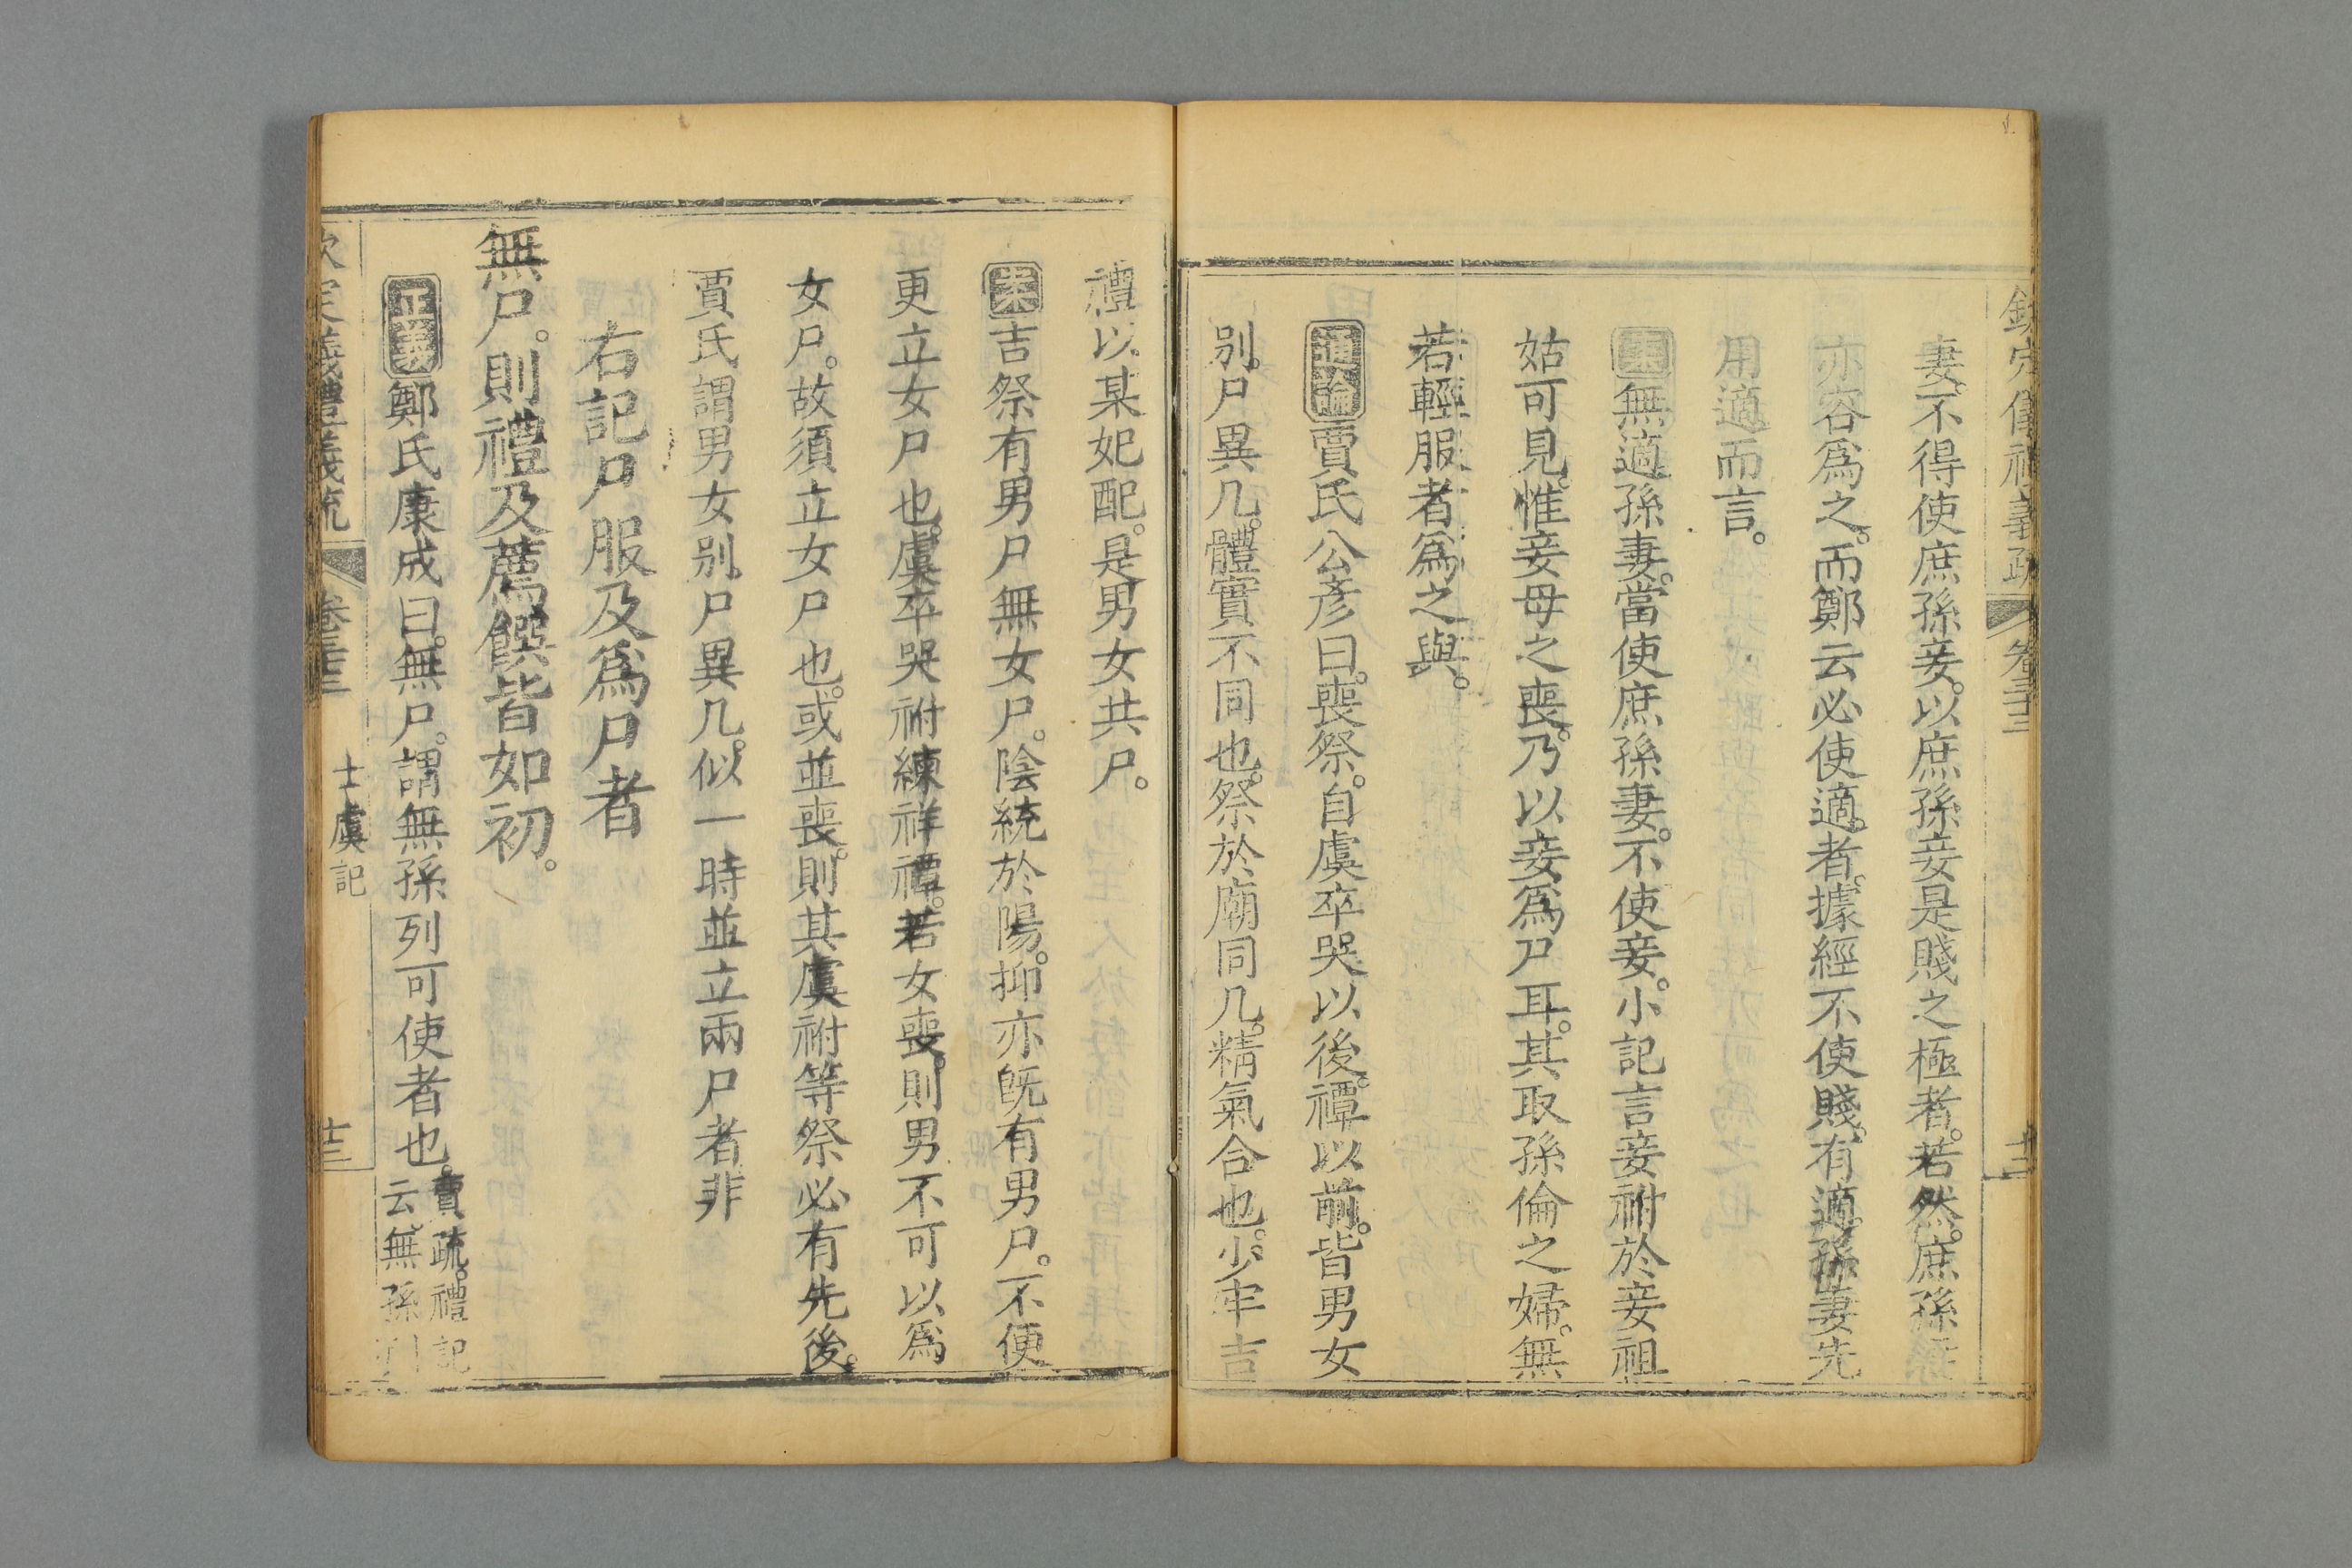 欽定儀禮義疏 卷三十三 十三
妻不得使庶孫妾。以庶孫妾是賤之極者。若然。庶孫
亦容爲之。而鄭云必使適者。據經不使賤。有適孫妻先
用適而言。
案無適孫妻。當使庶孫妻。不使妾。小記言妾祔於妾祖
姑可見。惟妾母之喪。乃以妾爲尸耳。其取孫倫之婦。無
若輕服者爲之與。
通論賈氏公彥曰。喪祭。自虞卒哭以後。禫以前。皆男女
別。尸異几。體實不同也。祭於廟同几。精氣合也。少牢吉
禮以某妃配。是男女共尸。
案吉祭有男尸無女尸。陰統於陽。抑亦旣有男尸。不便
更立女尸也。虞卒哭祔練祥禫。若女喪。則男不可以爲
女尸。故須立女尸也。或並喪。則其虞祔等祭必有先後。
賈氏謂男女別尸異几。似一時並立兩尸者非
右記尸服及爲尸者
無尸。則禮及薦饌皆如初。
正義鄭氏康成曰。無尸。謂無孫列可使者也。賈疏。禮記
云無孫列
欽定儀禮義疏 卷三十三 士虞記 十三